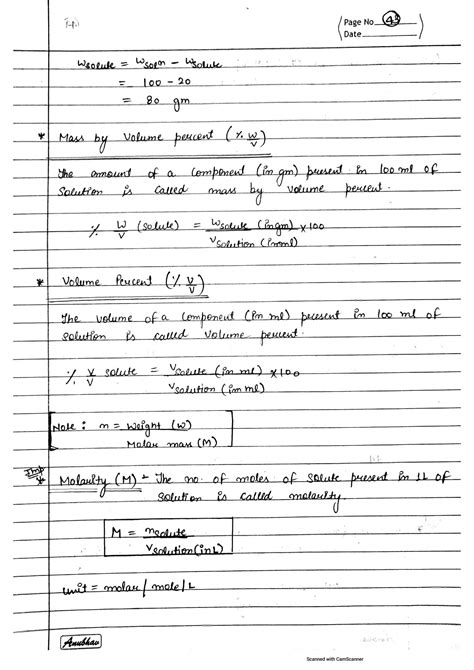 Page No. 43
Date
Wsolute = Wsoln - Wsolute
= 100 - 20
= 80 gm
* Mass by Volume percent (% W/V)
The amount of a component (in gm) present in 100 ml of
Solution is called mass by volume percent.
% W/V (solute) = Wsolute (in gm) / Vsolution (in ml) x 100
* Volume Percent (% V/V)
The volume of a component (in ml) present in 100 ml of
solution is called volume percent.
% V/V solute = Vsolute (in ml) / Vsolution (in ml) x 100
Note : n = Weight (W) / Molar mass (M)
Imp
* Molarity (M) - The no. of moles of solute present in 1L of
Solution is called molarity.
M = nsolute / Vsolution (in L)
unit = molar / mole / L
Anubhav
Scanned with CamScanner